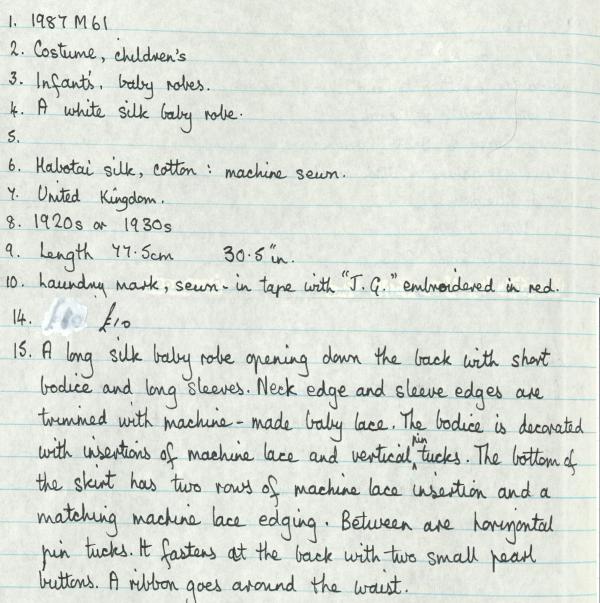 1. 1987 M 61
2. Costume, children's
3. Infant's, baby robes.
4. A white silk baby robe.
5.
6. Habotai silk, cotton : machine sewn.
7. United Kingdom.
8. 1920s or 1930s
9. Length 77.5cm 30.5"in.
10. Laundry mark, sewn-in tape with "J.G." embroidered in red.
14. £10
15. A long silk baby robe opening down the back with short
bodice and long sleeves. Neck edge and sleeve edges are
trimmed with machine-made baby lace. The bodice is decorated
with insertions of machine lace and vertical pin tucks. The bottom of
the skirt has two rows of machine lace insertion and a
matching machine lace edging. Between are horizontal
pin tucks. It fastens at the back with two small pearl
buttons. A ribbon goes around the waist.